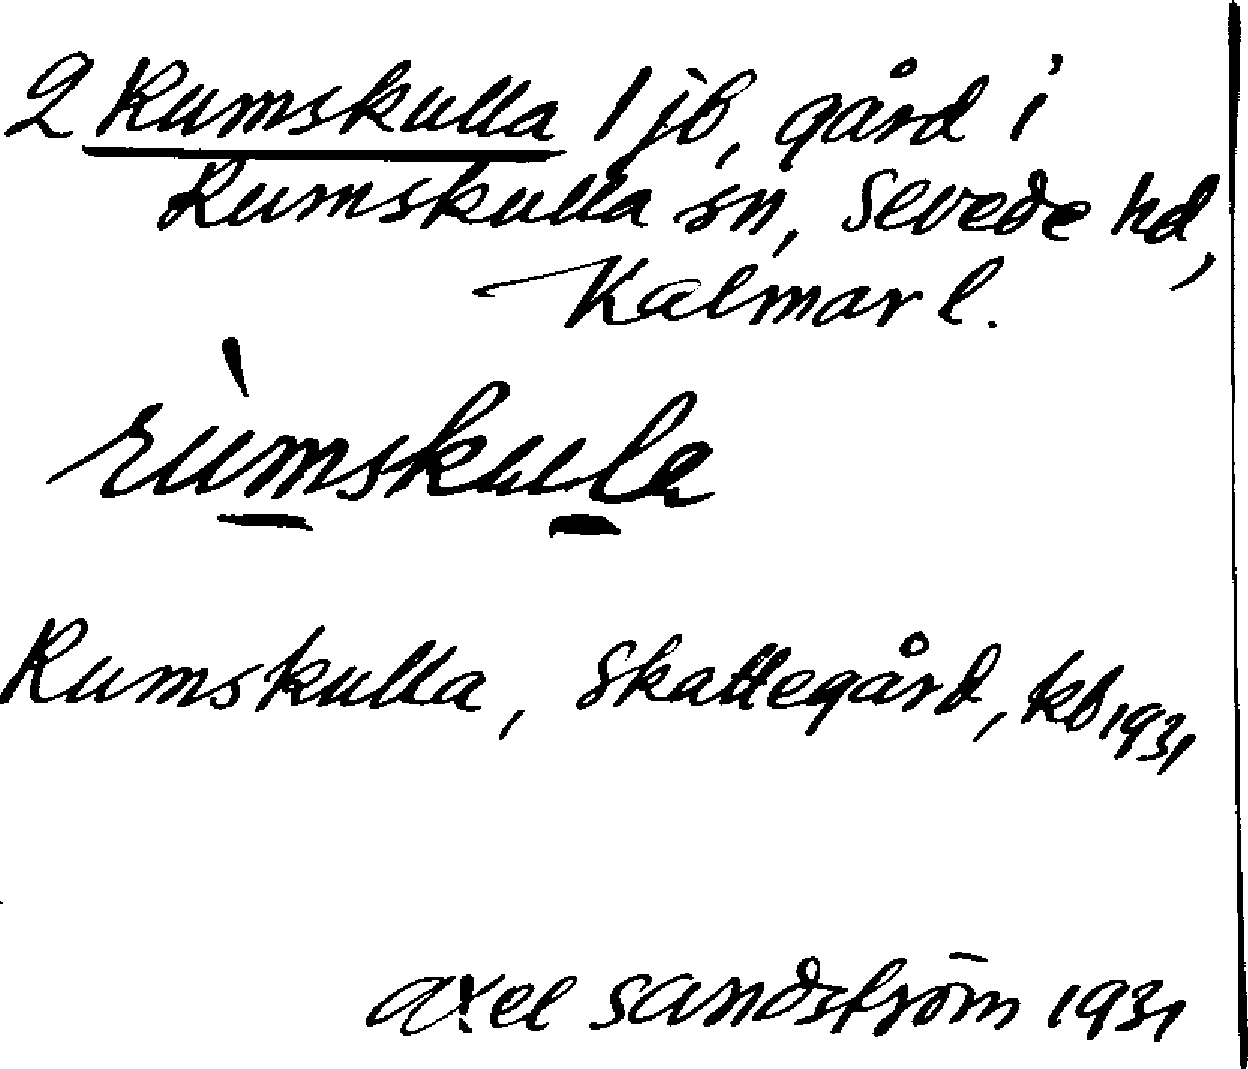 2 Rumskulla 1 jb, gård i
Rumskulla sn, Sevede hd,
Kalmar l.
rùmskula
Rumskulla, Skattegård, kb 1931
Axel Sandström 1931